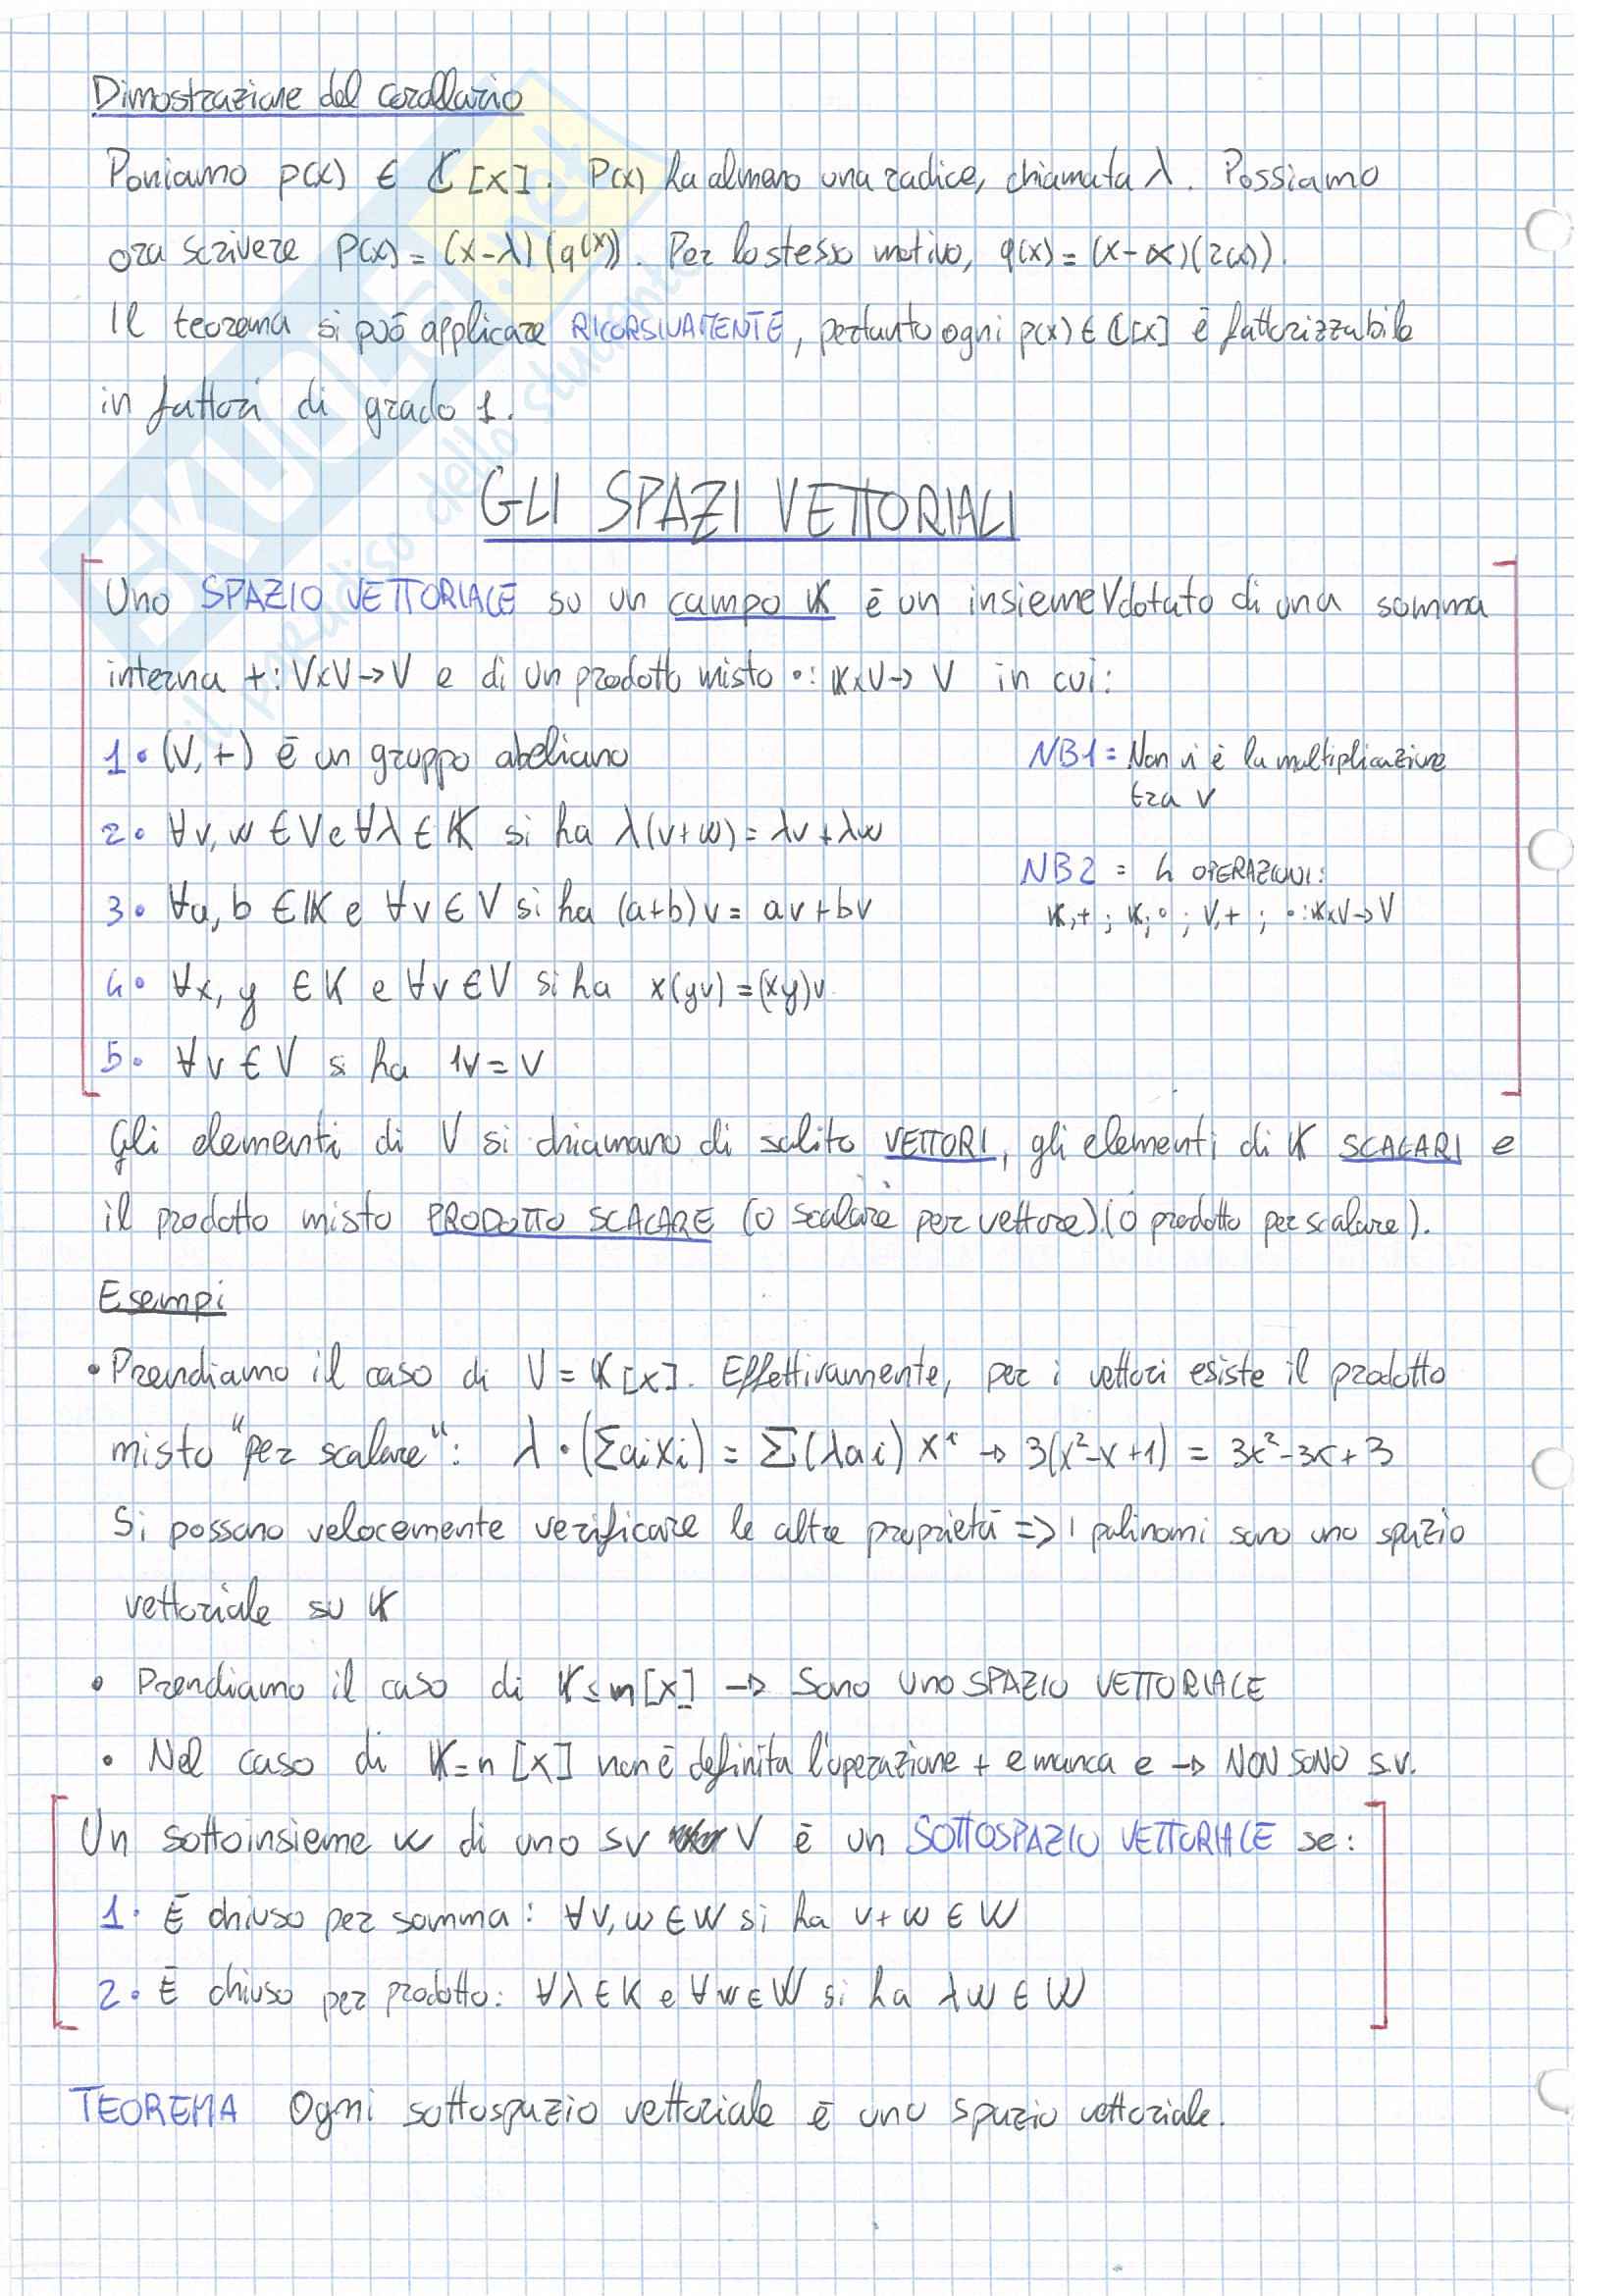 Dimostrazione del corollario
Poniamo p(x) ∈ ℂ[x]. P(x) ha almeno una radice, chiamata λ. Possiamo
ora scrivere P(x) = (x-λ)(q(x)). Per lo stesso motivo, q(x) = (x-α)(r(x)).
Il teorema si può applicare RICORSIVAMENTE, pertanto ogni p(x) ∈ ℂ[x] è fattorizzabile
in fattori di grado 1.
GLI SPAZI VETTORIALI
Uno SPAZIO VETTORIALE su un campo 𝕂 è un insieme V dotato di una somma
interna +: V×V→V e di un prodotto misto •: 𝕂×V→V in cui:
1• (V,+) è un gruppo abeliano
NB1 = Non vi è la multiplicazione
tra v
2• ∀v, w ∈ V e ∀λ ∈ 𝕂 si ha λ(v+w) = λv + λw
NB2 = 4 OPERAZIONI:
3• ∀a, b ∈ 𝕂 e ∀v ∈ V si ha (a+b)v = av+bv
𝕂,+ ; 𝕂,• ; V,+ ; •:𝕂×V→V
4• ∀x, y ∈ K e ∀v ∈ V si ha x(yv) = (xy)v
5• ∀v ∈ V si ha 1v = v
Gli elementi di V si chiamano di solito VETTORI, gli elementi di 𝕂 SCALARI e
il prodotto misto PRODOTTO SCALARE (o scalare per vettore).(o prodotto per scalare).
Esempi
• Prendiamo il caso di V = 𝕂[x]. Effettivamente, per i vettori esiste il prodotto
misto "per scalare": λ•(Σaixi) = Σ(λai)xⁱ → 3(x²-x+1) = 3x²-3x+3
Si possono velocemente verificare le altre proprietà => I polinomi sono uno spazio
vettoriale su 𝕂
• Prendiamo il caso di 𝕂≤n[x] → Sono uno SPAZIO VETTORIALE
• Nel caso di 𝕂=n[x] non è definita l'operazione + e manca e → NON SONO s.v.
Un sottoinsieme W di uno sv V è un SOTTOSPAZIO VETTORIALE se:
1• È chiuso per somma: ∀v, w ∈ W si ha v+w ∈ W
2• È chiuso per prodotto: ∀λ ∈ K e ∀w ∈ W si ha λw ∈ W
TEOREMA Ogni sottospazio vettoriale è uno spazio vettoriale.
SKUOLA.net
il paradiso dello studente